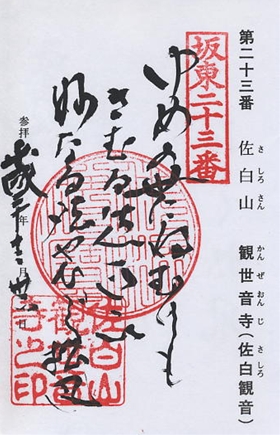 第二十三番 佐白山 観世音寺(佐白観音)
さ しろ さん かん ぜ おん じ さ しろ
坂東二十三番
ゆめの世にねむりも
さむる
妙なる法やひゞく松風
参拝 年 月 日
佐白山
寺之印